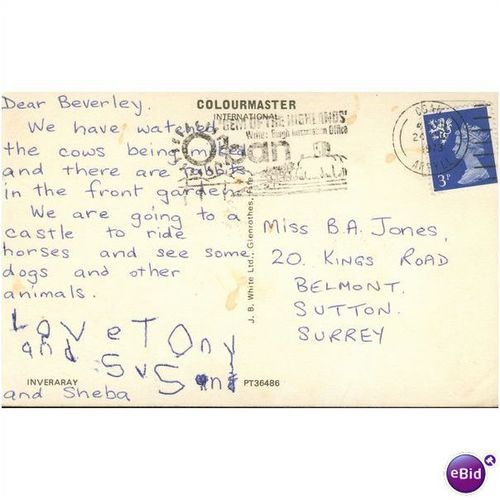 Dear Beverley.
We have watched
the cows being milked
and there are rabbits
in the front garden.
We are going to a
castle to ride
horses and see some
dogs and other
animals.
Love Tony
and
and Sheba
INVERARAY
COLOURMASTER
INTERNATIONAL
'GEM OF THE HIGHLANDS'
Write: Burgh Information Office
Oban
J. B. White Ltd., Glenrothes, Fife
PT36486
OBAN
1973
ARGYLL
3P
Miss B.A. Jones,
20. Kings Road
Belmont.
Sutton.
Surrey
eBid